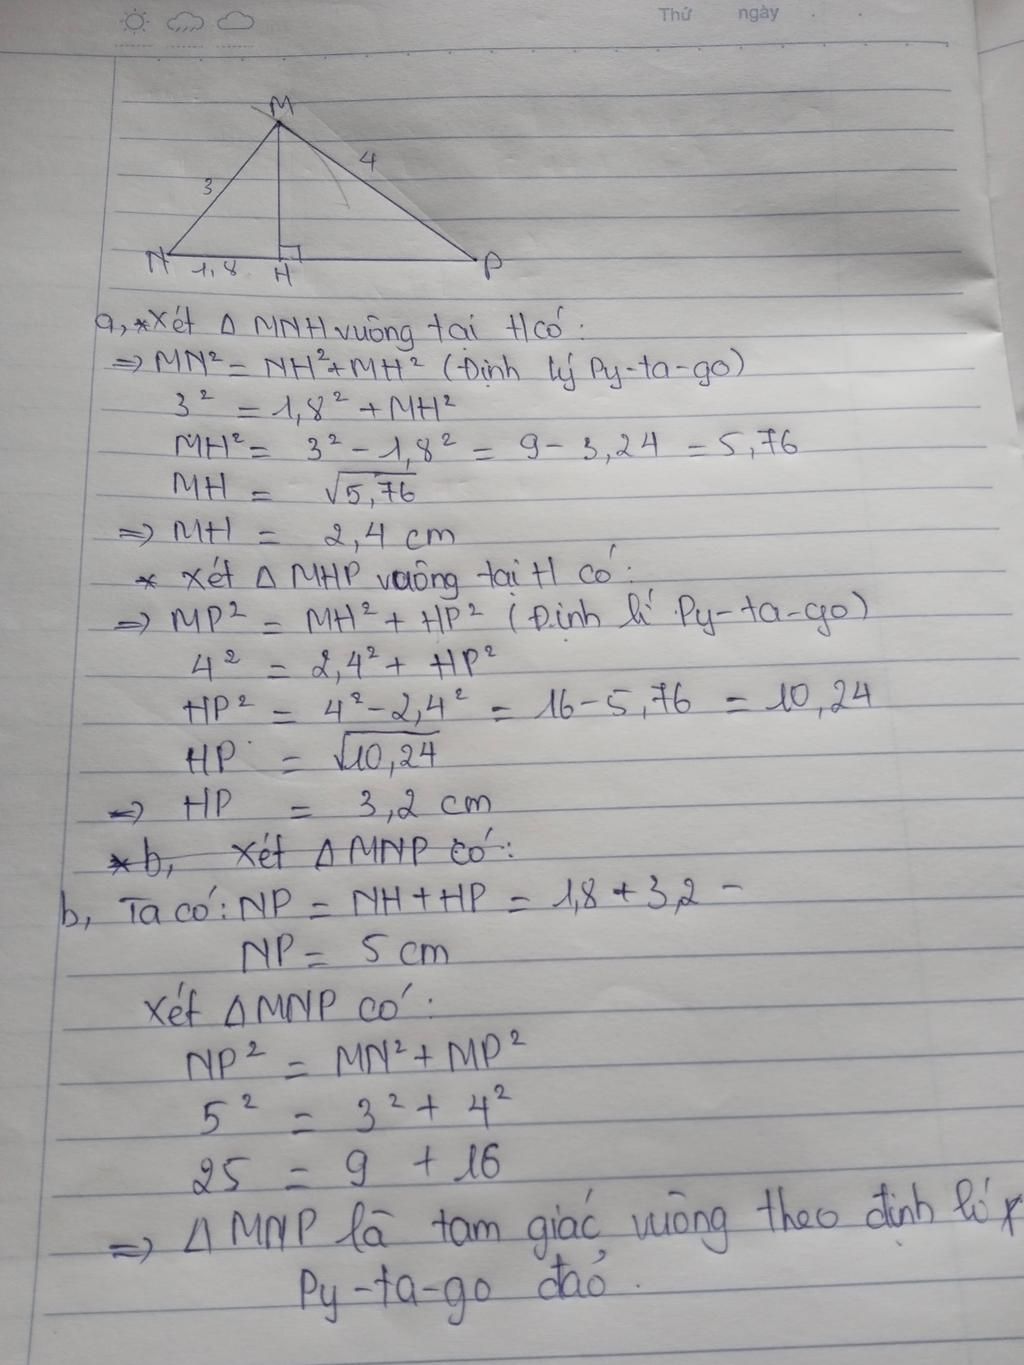 Thứ ngày
M
3
4
N
1,8
H
P
a, * Xét Δ MNH vuông tại H có:
⇒ MN² = NH² + MH² (Định lý Py-ta-go)
3² = 1,8² + MH²
MH² = 3² - 1,8² = 9 - 3,24 = 5,76
MH = √5,76
⇒ MH = 2,4 cm
* Xét Δ MHP vuông tại H có:
⇒ MP² = MH² + HP² (Định lí Py-ta-go)
4² = 2,4² + HP²
HP² = 4² - 2,4² = 16 - 5,76 = 10,24
HP = √10,24
⇒ HP = 3,2 cm
* b, Xét Δ MNP có:
b, Ta có: NP = NH + HP = 1,8 + 3,2 -
NP = 5 cm
Xét Δ MNP có:
NP² = MN² + MP²
5² = 3² + 4²
25 = 9 + 16
⇒ Δ MNP là tam giác vuông theo định lí
Py-ta-go đảo.